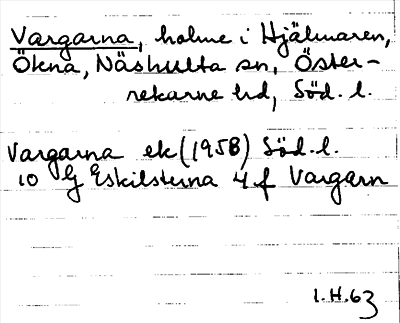 Vargarna, holme i Hjälmaren,
Ökna, Näshulta sn, Öster-
rekarne hd, Söd. l.
Vargarna ek (1958) Söd. l.
10 G Eskilstuna 4 f Vargarn
I.H.63